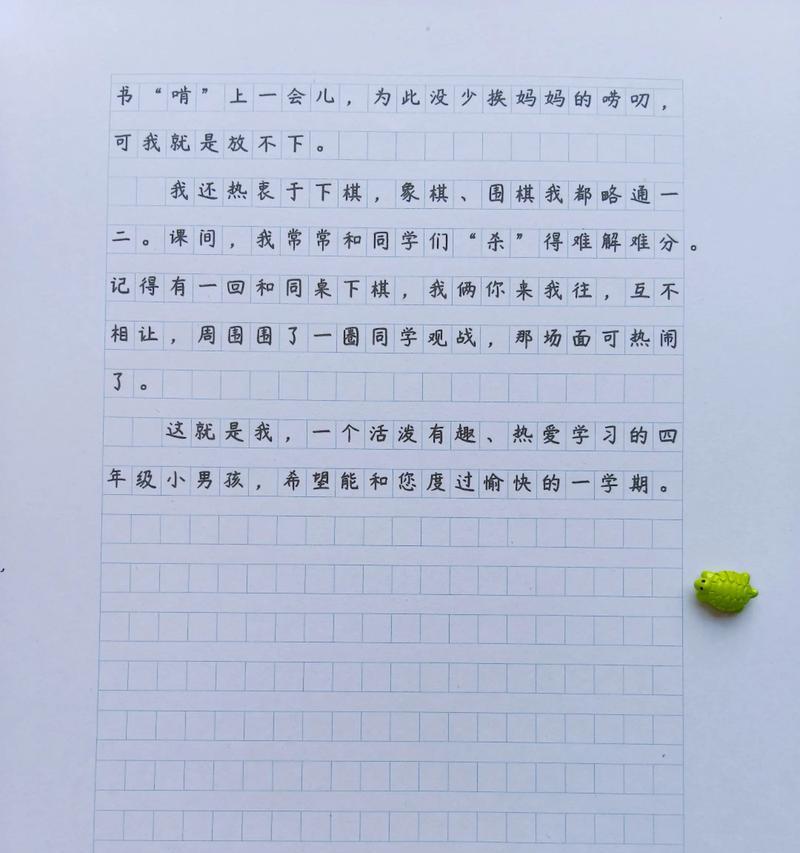 书“啃”上一会儿，为此没少挨妈妈的唠叨，
可我就是放不下。
我还热衷于下棋，象棋、围棋我都略通一
二。课间，我常常和同学们“杀”得难解难分。
记得有一回和同桌下棋，我俩你来我往，互不
相让，周围围了一圈同学观战，那场面可热闹
了。
这就是我，一个活泼有趣、热爱学习的四
年级小男孩，希望能和您度过愉快的一学期。